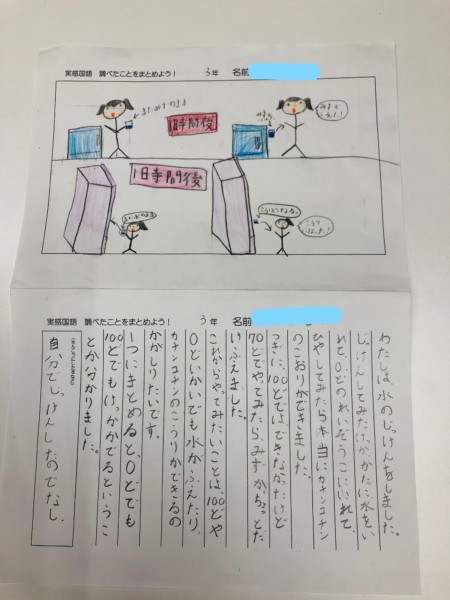 実感国語 調べたことをまとめよう！ 3年 名前
1時間後
1日寺間後
実感国語 調べたことをまとめよう！ 3年 名前
わたしは水のじっけんをしました。
じっけんしてみたけっか、かたに水をい
れて、0どのれいぞうこにいれて、
ひやしてみたら本当にカチンコチン
のこおりができました。
つぎに、100どではできなかったけど
70どでやってみたら、みずがちょっとだ
けふえました。
これからやってみたいことは、100どや
0どいかいでも水がふえたり、
カチンコチンのこうりができるの
かがしりたいです。
一つにまとめると、0どでも
100どでもけっかがでるというこ
とが分かりました。
自分でじっけんしたのでなし、